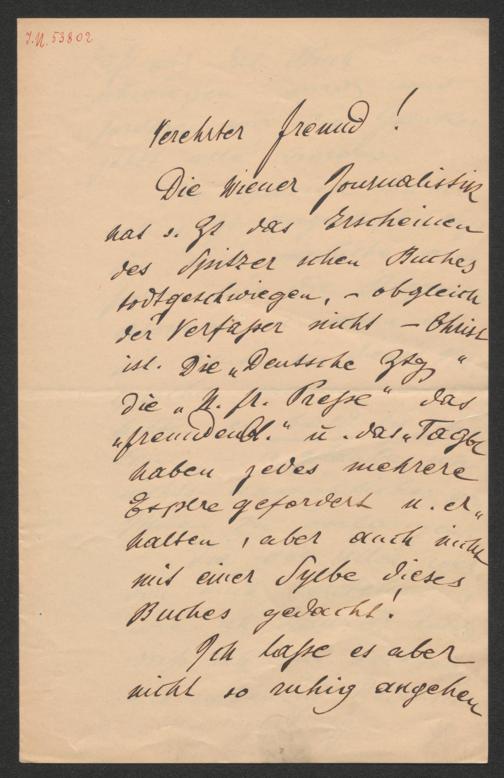 J.N. 53802
Verehrter Freund!
Die Wiener Journalistik
hat s. Zt das Erscheinen
des Spitzer'schen Buches
todtgeschwiegen, – obgleich
der Verfasser nicht – Christ
ist. Die „Deutsche Ztg"
die „N. fr. Presse" das
„Fremdenbl." u. das „Tagbl
haben jedes mehrere
Explre gefordert u. er-
halten, aber auch nicht
mit einer Sylbe dieses
Buches gedacht!
Ich lasse es aber
nicht so ruhig angehen